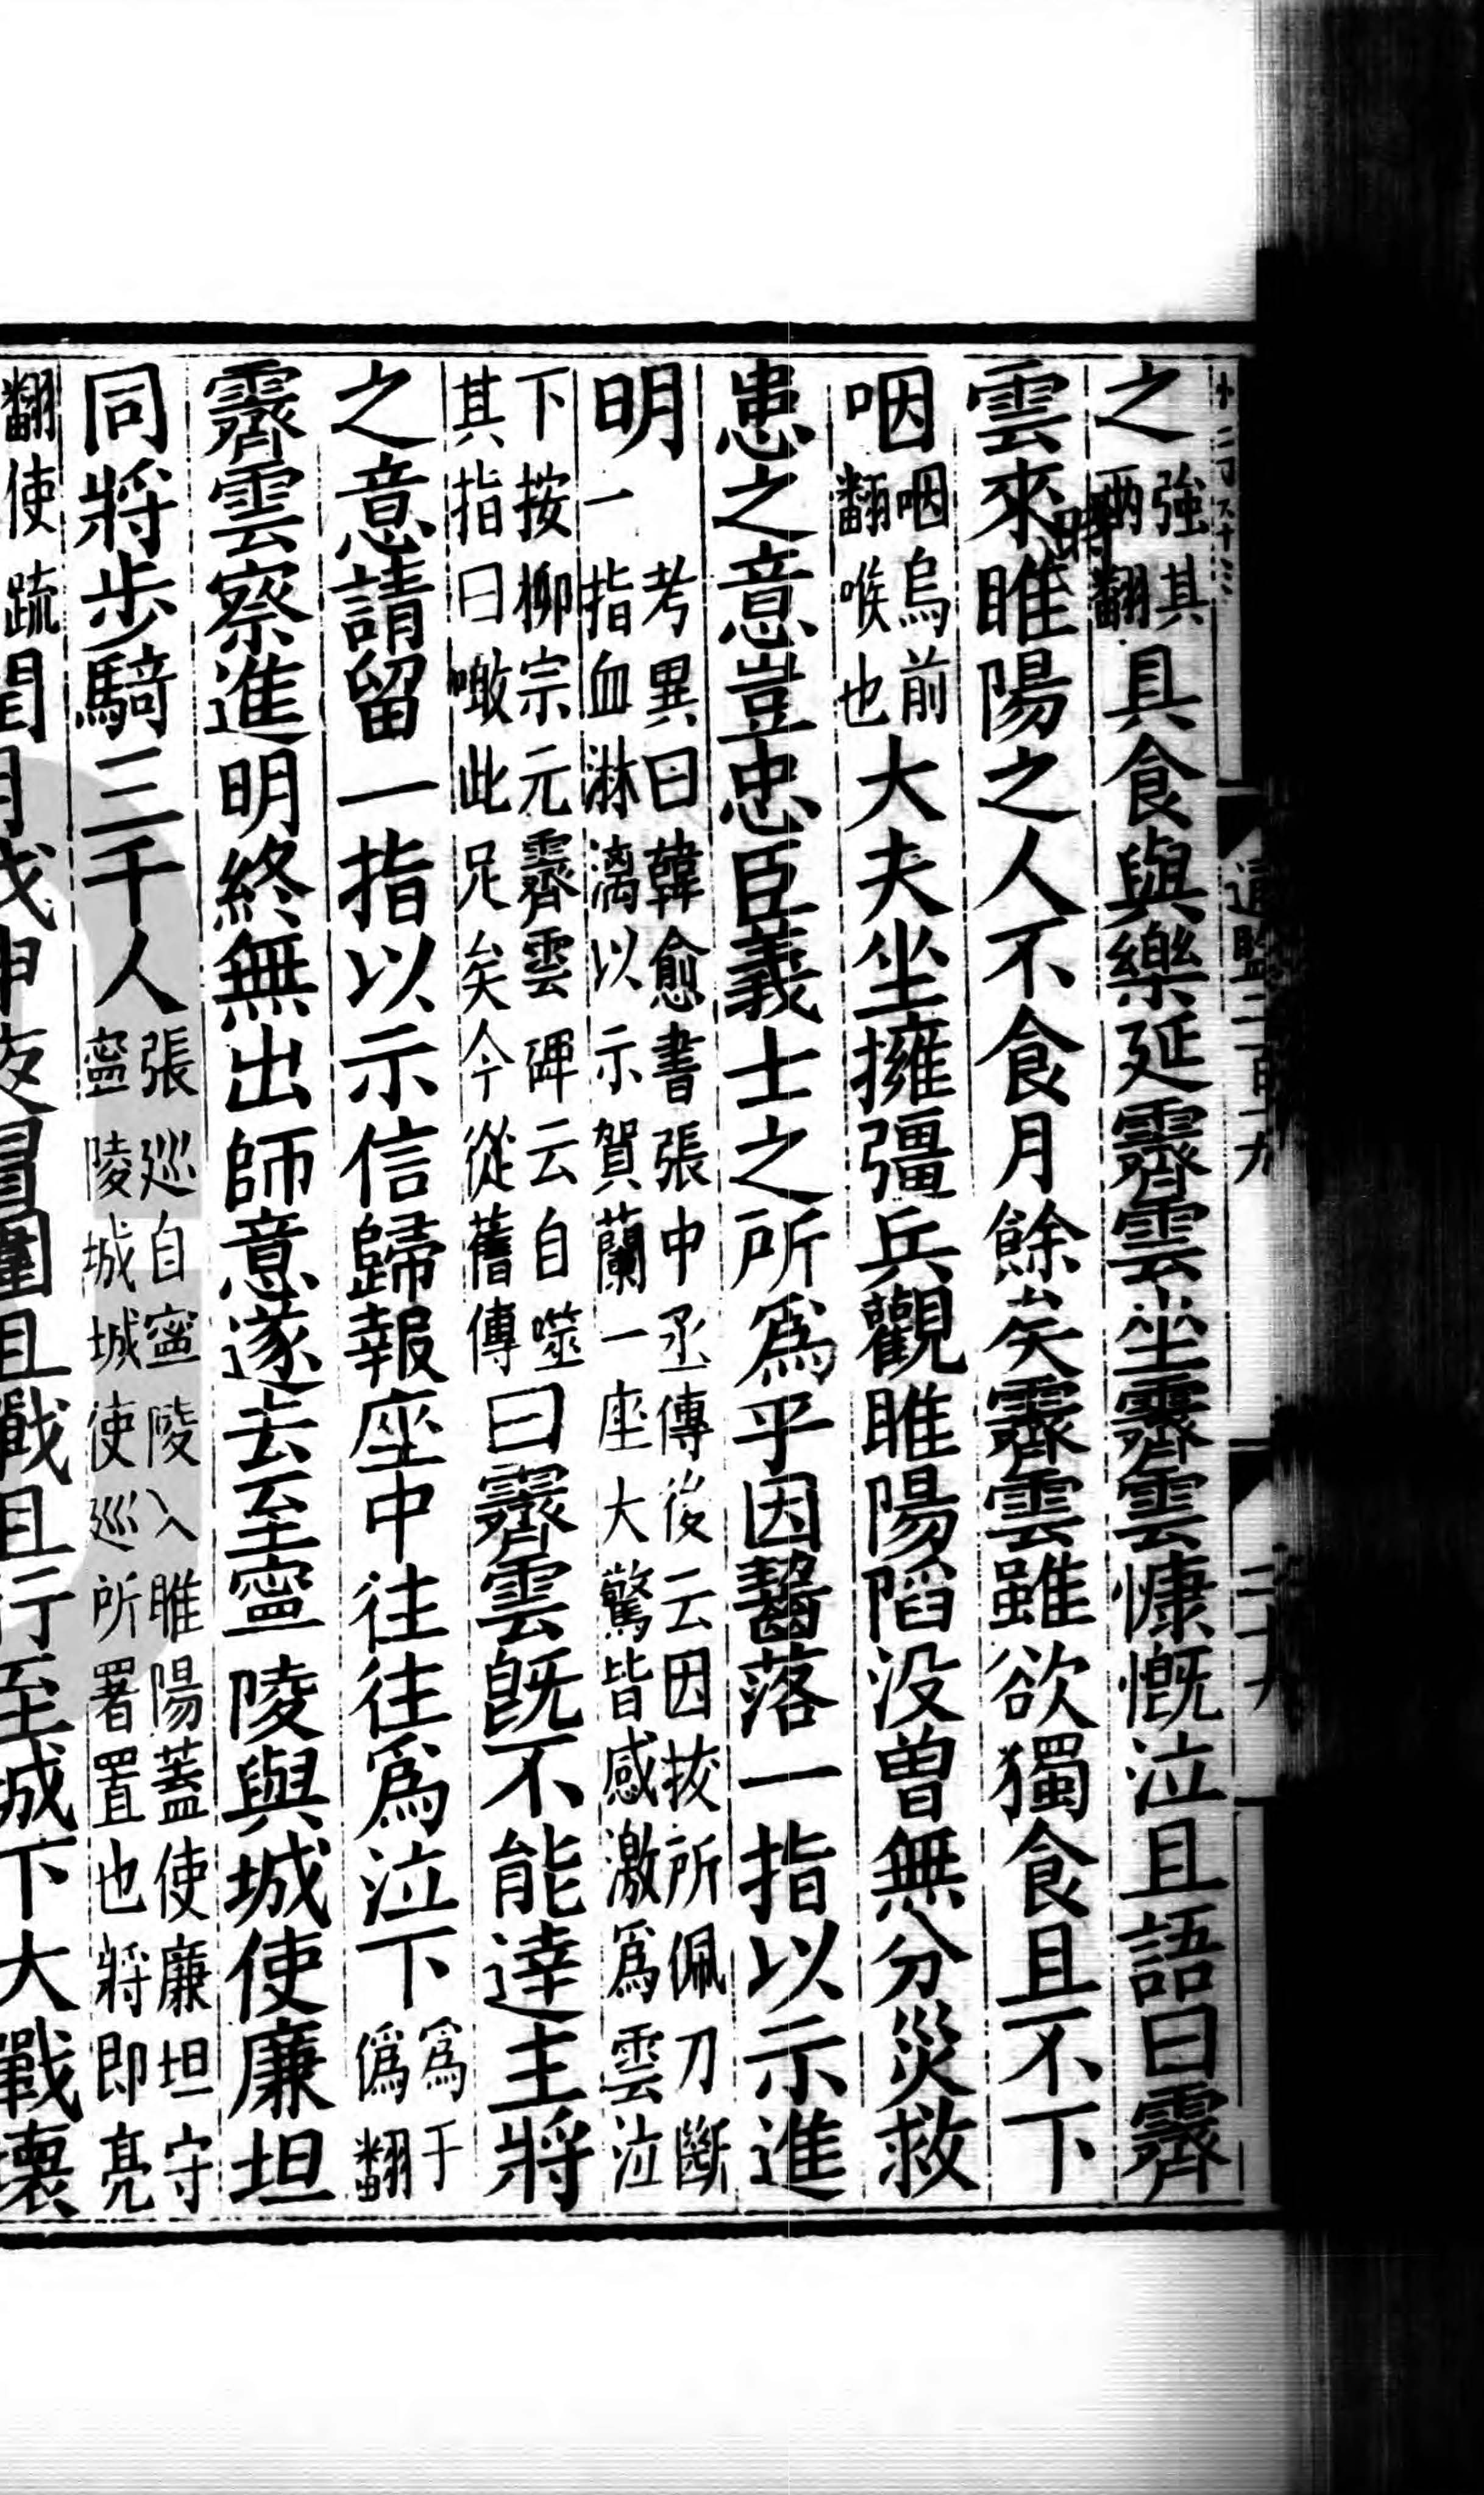 之強其兩翻具食與樂延霽雲坐霽雲慷慨泣且語曰霽
雲來時睢陽之人不食月餘矣霽雲雖欲獨食且不下
咽咽烏前翻喉也大夫坐擁彊兵觀睢陽陷没曾無分災救
患之意豈忠臣義士之所爲乎因齧落一指以示進
明考異曰韓愈書張中丞傳後云因拔所佩刀斷一指血淋漓以示賀蘭一座大驚皆感激爲雲泣
下按柳宗元霽雲碑云自噬其指曰噉此足矣今從舊傳曰霽雲既不能達主將
之意請留一指以示信歸報座中往往爲泣下爲于僞翻
霽雲察進明終無出師意遂去至寧陵與城使廉坦
同將步騎三千人張巡自寧陵入睢陽蓋使廉坦守寧陵城城使巡所署置也將即亮
翻使疏閏月戊申夜冒圍且戰且行至城下大戰壞
通鑑二百一九
二十九